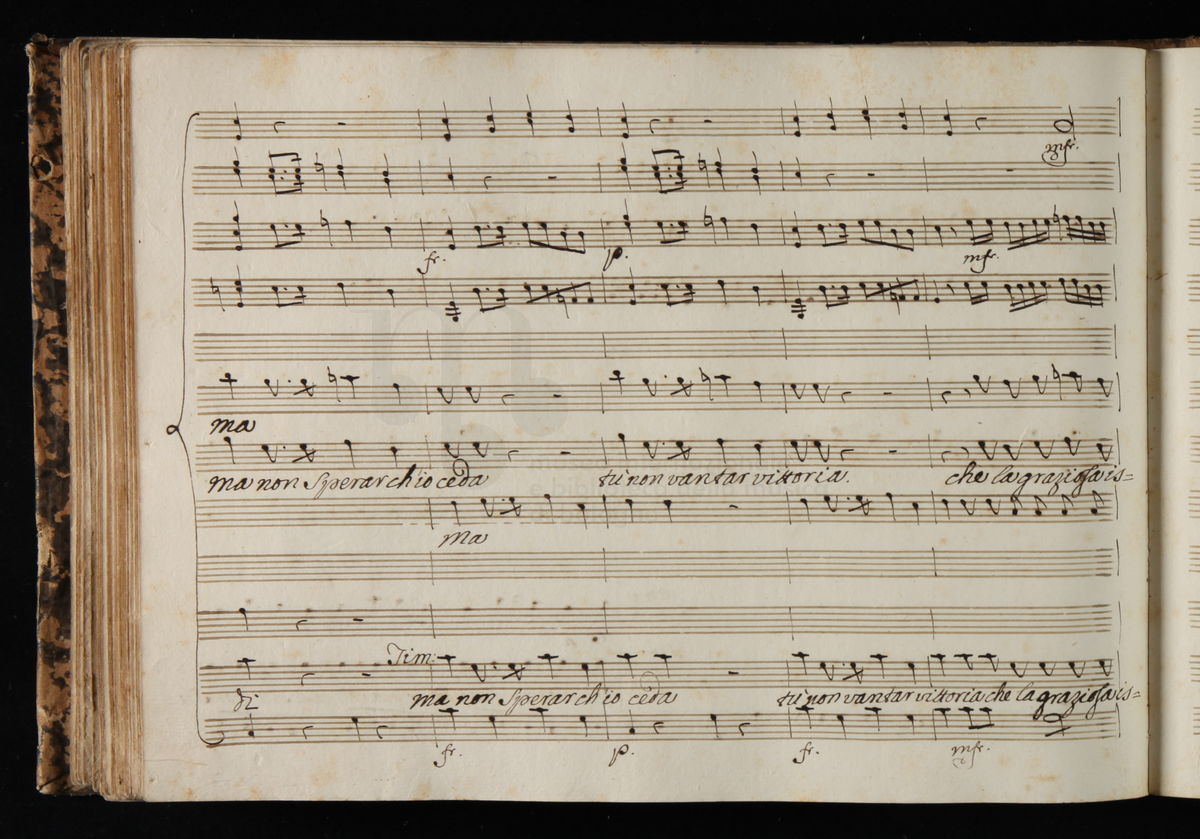 mfr.
fr. p. mfr.
ma
ma non sperar ch'io ceda tu non vantar vittoria. che la graziosa is=
ma
Tim:
di ma non sperar ch io ceda tu non vantar vittoria che la graziosa is=
fr. p. fr. mfr.